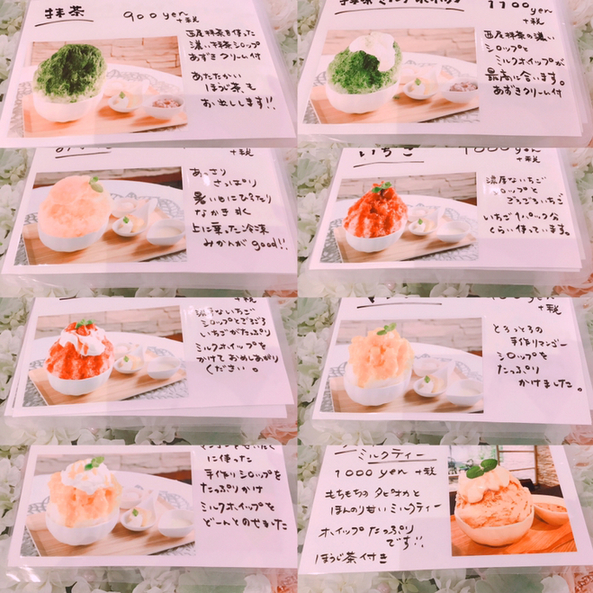 抹茶 900yen
+税
西尾抹茶を使った
濃い抹茶シロップ
あずきクリーム付
あたたかい
ほうじ茶も
お出しします!!
抹茶ミルクホイップ 1100
yen
+税
西尾抹茶の濃い
シロップと
ミルクホイップが
最高に合います。
あずきクリーム付
+税
あっさり
さっぱり
暑い日にぴったり
上に乗った冷凍
みかんがgood!!
いちご 1000yen
+税
濃厚ないちご
シロップと
ごろごろいちご
いちご1パック分
くらい使っています。
+税
濃厚ないちご
シロップとごろごろ
いちごがたっぷり
ミルクホイップを
かけておめしあがり
ください。
yen
+税
とろっとろの
手作りマンゴー
シロップを
たっぷり
かけました。
に使った
手作りシロップを
たっぷりかけ
ミルクホイップを
どーんとのせました
ミルクティー
1000yen +税
もちもちのタピオカと
ほんのり甘いミルクティー
ホイップたっぷり
です!!
ほうじ茶付き